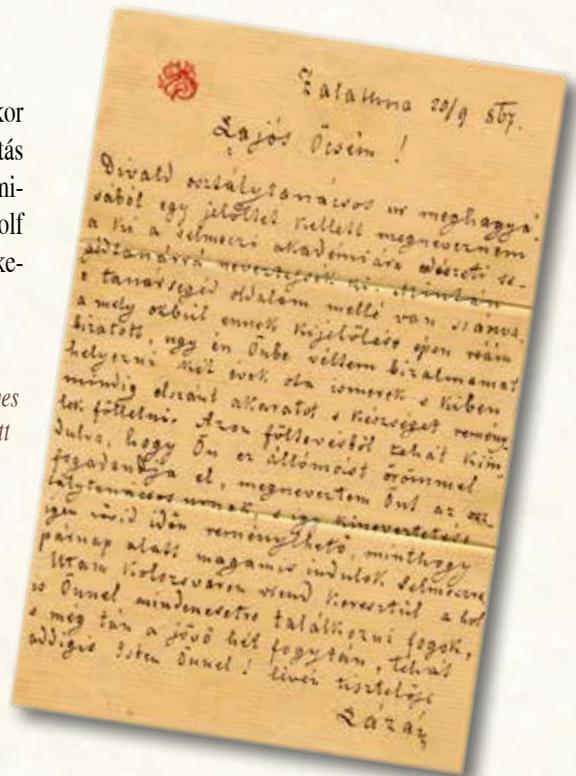 kor
tás
mi-
olf
ke-
es
tt
Zalathna 20/9 867.
Lajós Öcsém!
Divald osztálytanácsos úr meghagyá-
sából egy jelöltet kellett megneveznem
a ki a selmeczi akadémiára erdészeti se-
gédtanárrá neveztessék ki. Miután
e tanársegéd oldalam mellé van szánva,
a mely okból ennek kijelölése épen reám
bizatott, úgy én Önbe vettem bizalmamat
helyezni kit évek óta ismerek s kiben
mindig elszánt akaratot s készséget remény-
lek föllelni. Azon föltevésből tehát kiin-
dulva, hogy Ön ez állomást örömmel
fogadandja el, megneveztem Önt az osz-
tálytanácsos urnak, s így kineveztetése
igen rövid időn reményIhető, minthogy
párnap alatt magam is indulok Selmeczre
Utam Kolozsváron viend keresztül a hol
is Önnel mindenesetre találkozni fogok,
s még tán a jövő hét fogytán, tehát
addigis Isten Önnel! tisztelője
Lázár